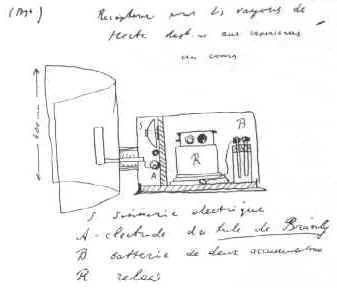 Récepteur pour les rayons de
Hertz destiné aux expériences
en cours
S
A
R
B
S sonnerie electrique
A - electrode du tube de Branly
B batterie de deux accumulateurs
R relais